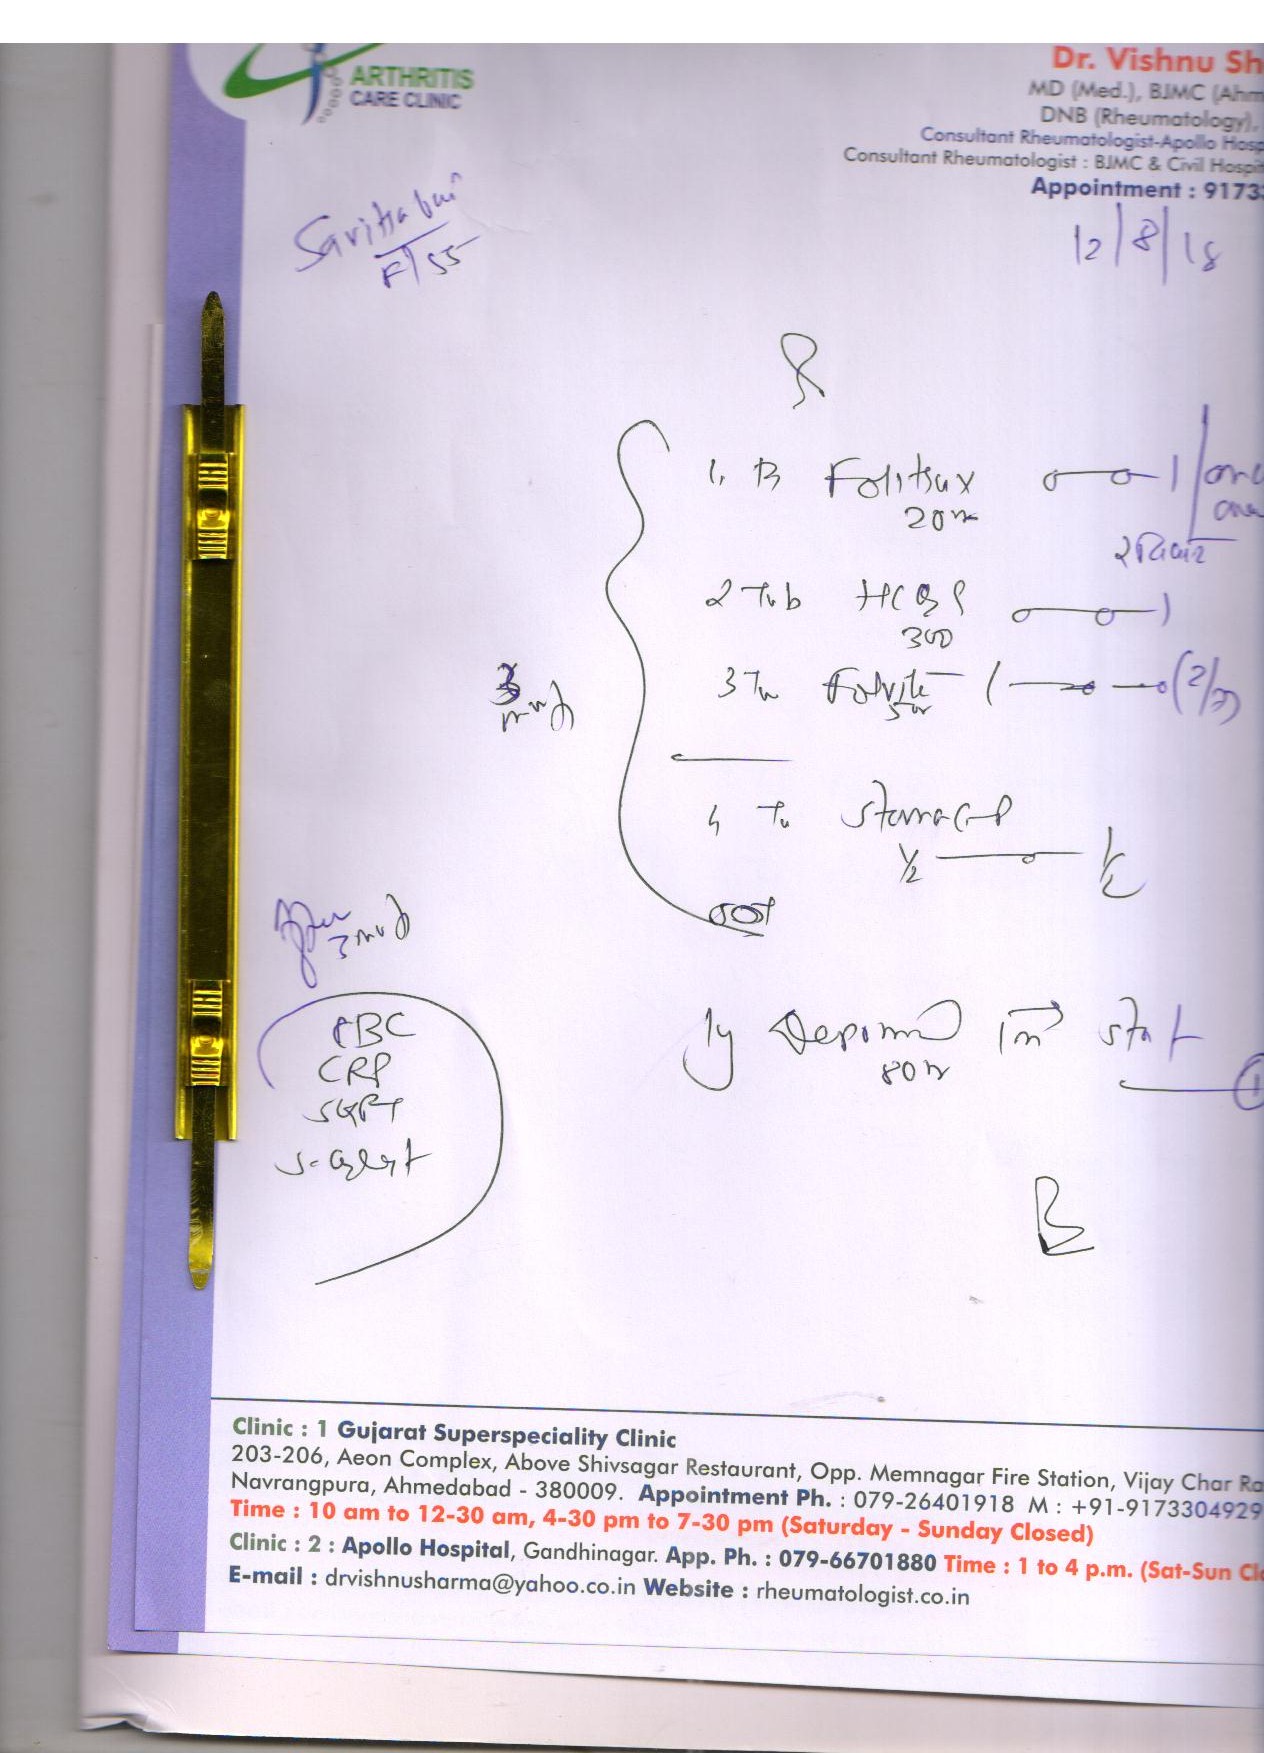 ARTHRITIS
CARE CLINIC
Dr. Vishnu Sh
MD (Med.), BJMC (Ahm
DNB (Rheumatology),
Consultant Rheumatologist-Apollo Hosp
Consultant Rheumatologist : BJMC & Civil Hospit
Appointment : 9173
Savitabai
F/55
12/8/18
1. Folitrax
20
2 Tab HCQS
300
3 Folvite 1 (2/7)
5
3
4
1/2 1/2
SOS
3
CBC
CRP
SGPT
Inj Depomed Im stat
80
1
Clinic : 1 Gujarat Superspeciality Clinic
203-206, Aeon Complex, Above Shivsagar Restaurant, Opp. Memnagar Fire Station, Vijay Char Ra
Navrangpura, Ahmedabad - 380009. Appointment Ph. : 079-26401918 M : +91-9173304929
Time : 10 am to 12-30 am, 4-30 pm to 7-30 pm (Saturday - Sunday Closed)
Clinic : 2 : Apollo Hospital, Gandhinagar. App. Ph. : 079-66701880 Time : 1 to 4 p.m. (Sat-Sun Clo
E-mail : drvishnusharma@yahoo.co.in Website : rheumatologist.co.in